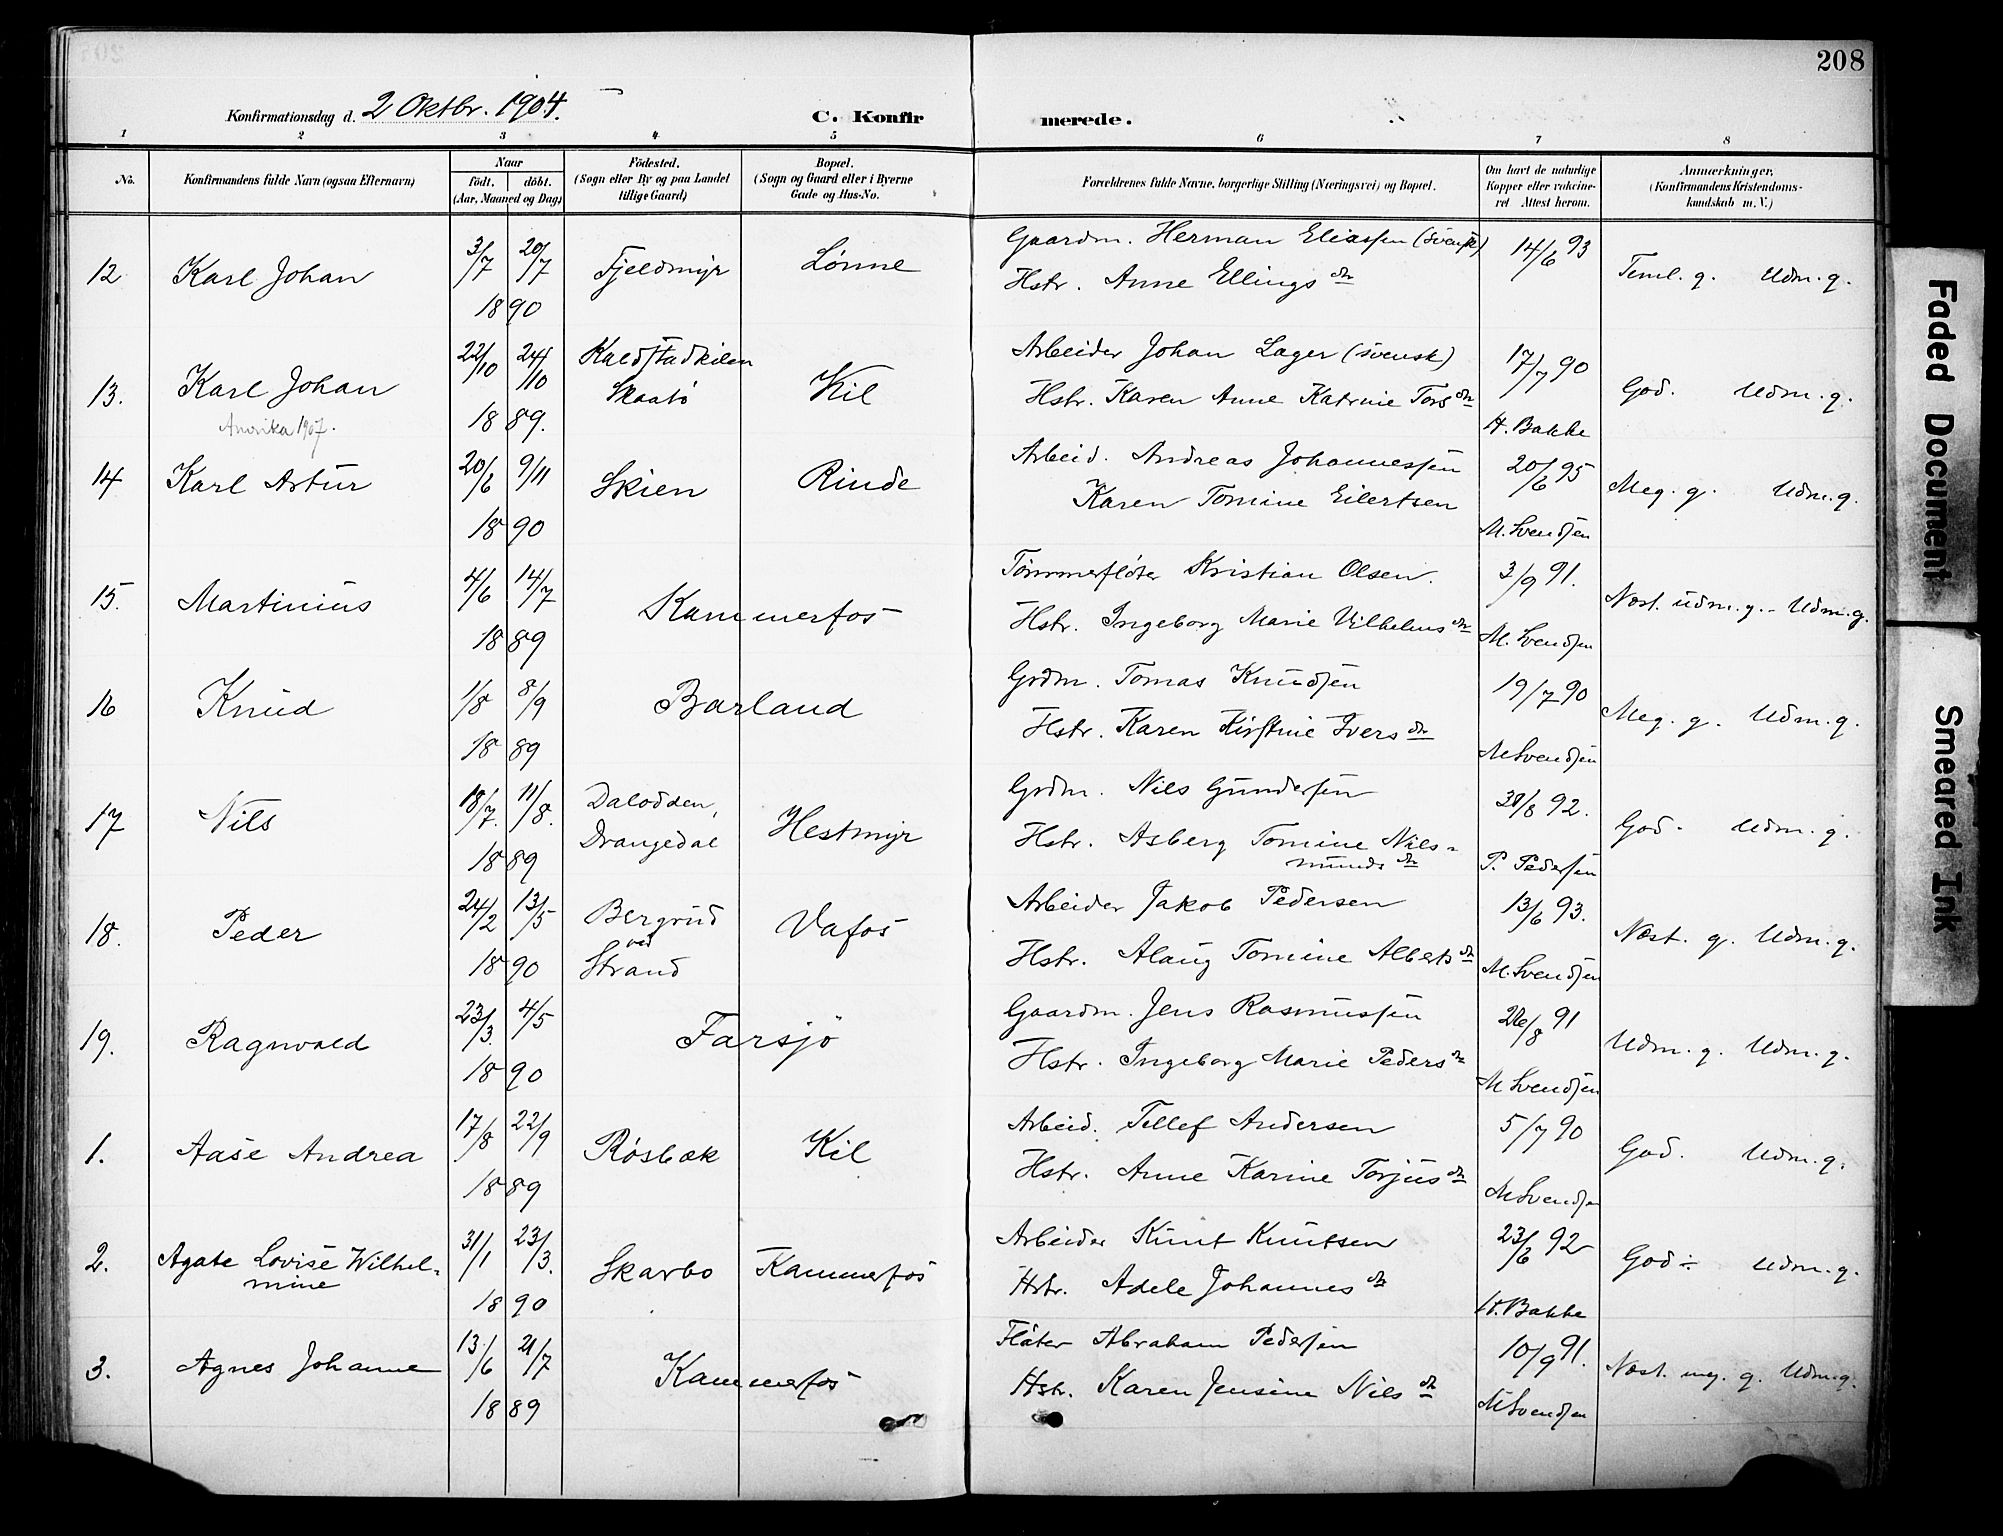 208
Konfirmationsdag d. 2 Oktbr. 1904.
C. Konfirmerede.
1 2 3 4 5 6 7 8
No.
Konfirmandens fulde Navn (ogsaa Efternavn)
Naar
født. døbt.
(Aar, Maaned og Dag)
Födested.
(Sogn eller By og paa Landet
tillige Gaard)
Bopæl.
(Sogn og Gaard eller i Byerne
Gade og Hus-No.
Forældrenes fulde Navne, borgerlige Stilling (Næringsvei) og Bopæl.
Om havt de naturlige
Kopper eller vakcine-
ret Attest herom.
Anmærkninger,
(Konfirmandens Kristendoms-
kundskab m. V.)
12 Karl Johan 3/7 20/7 1890 Fjeldmyr Lønne
Gaardm. Herman Eliassen (svensk)
Hstr. Anne Ellings dr
14/6 93
Teml. g. Udm. g.
13. Karl Johan 22/10 24/10 1889. Kaldstadkilen
Skaatø
Kil
Amerika 1907.
Arbeider Johan Lager (svensk)
Hstr. Karen Anne Katrine Tors dr
17/7 90
H. Bakke
God. Udm. g.
14 Karl Artur 20/6 9/11 1890 Skien Rinde
Arbeid. Andreas Johannessen
Karen Tomine Eilertsen
20/6 95
M. Svendsen
Meg. g. Udm. g.
15. Martinius 4/6 14/7 1889 Kammerfos
Tømmerfløter Kristian Olsen.
Hstr. Ingeborg Marie Vilhelms dr
3/9 91.
M. Svendsen
Næst. udm. g. - Udm. g.
16 Knud 1/8 8/9 1889 Barland
Grdm. Tomas Knudsen
Hstr. Karen Kirstine Ivers dr
19/7 90
M Svendsen
Meg. g. Udm. g.
17 Nils 18/7. 11/8. 1889 Dalodden,
Drangedal
Hestmyr
Grdm. Nils Gundersen
Hstr. Asberg Tomine Nils-
munds dr
/8 92.
P. Pedersen
God. Udm. g.
18. Peder 24/2 13/5 1890 Bergrud
ved
Strand
Vafos
Arbeider Jakob Pedersen
Hstr. Alaug Tomine Alberts dr
13/6 93.
M. Svendsen
Næst. g. Udm. g.
19. Ragnvald 23/3. 4/5 1890 Farsjø
Gaardm. Jens Rasmussen
Hstr. Ingeborg Marie Peders dr
/8 91
M Svendsen
Udm. g. Udm. g.
1. Aase Andrea 17/8 22/9 1889 Røsbæk Kil
Arbeid. Tellef Andersen
Hstr. Anne Karine Torjus dr
5/7 90
M Svendsen
God. Udm. g.
2. Agate Lovise Wilhel-
mine
31/1 23/3. 1890 Skarbo Kammerfos
Arbeider Knut Knutsen
Hstr. Adele Johannes dr
23/6 92
H. Bakke
God ÷ Udm. g.
3. Agnes Johanne 13/6 21/7 1889 Kammerfos
Fløter Abraham Pedersen
Hstr. Karen Jensine Nils dr
10/9 91.
M Svendsen
Næst. meg. g. Udm. g.
Faded Document
Smeared Ink